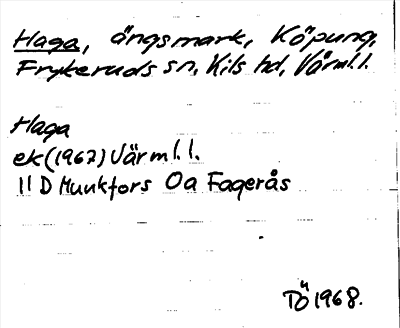 Haga, ängsmark, Köpung,
Frykeruds sn, Kils hd, Värml.l.
Haga
ek (1967) Värml.l.
11 D Munkfors 0a Fagerås
TÖ 1968.